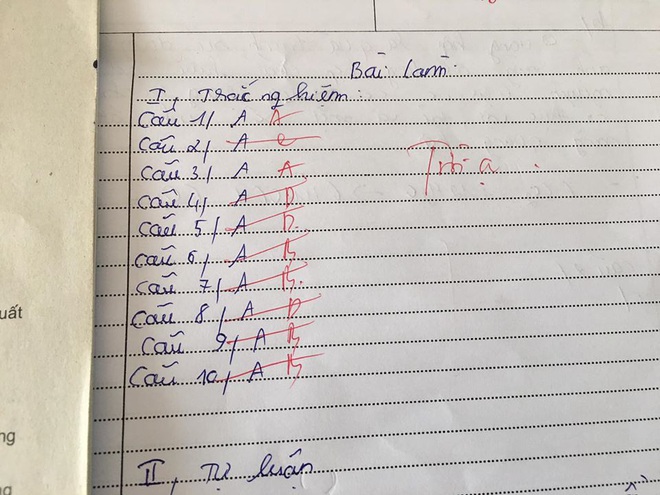 Bài làm:
I, Trắc nghiệm:
Câu 1/ A A
Câu 2/ A C
Câu 3/ A A
Câu 4/ A D
Câu 5/ A D
Câu 6/ A B
Câu 7/ A B
Câu 8/ A D
Câu 9/ A B
Câu 10/ A B
II, Tự luận
uất
ng